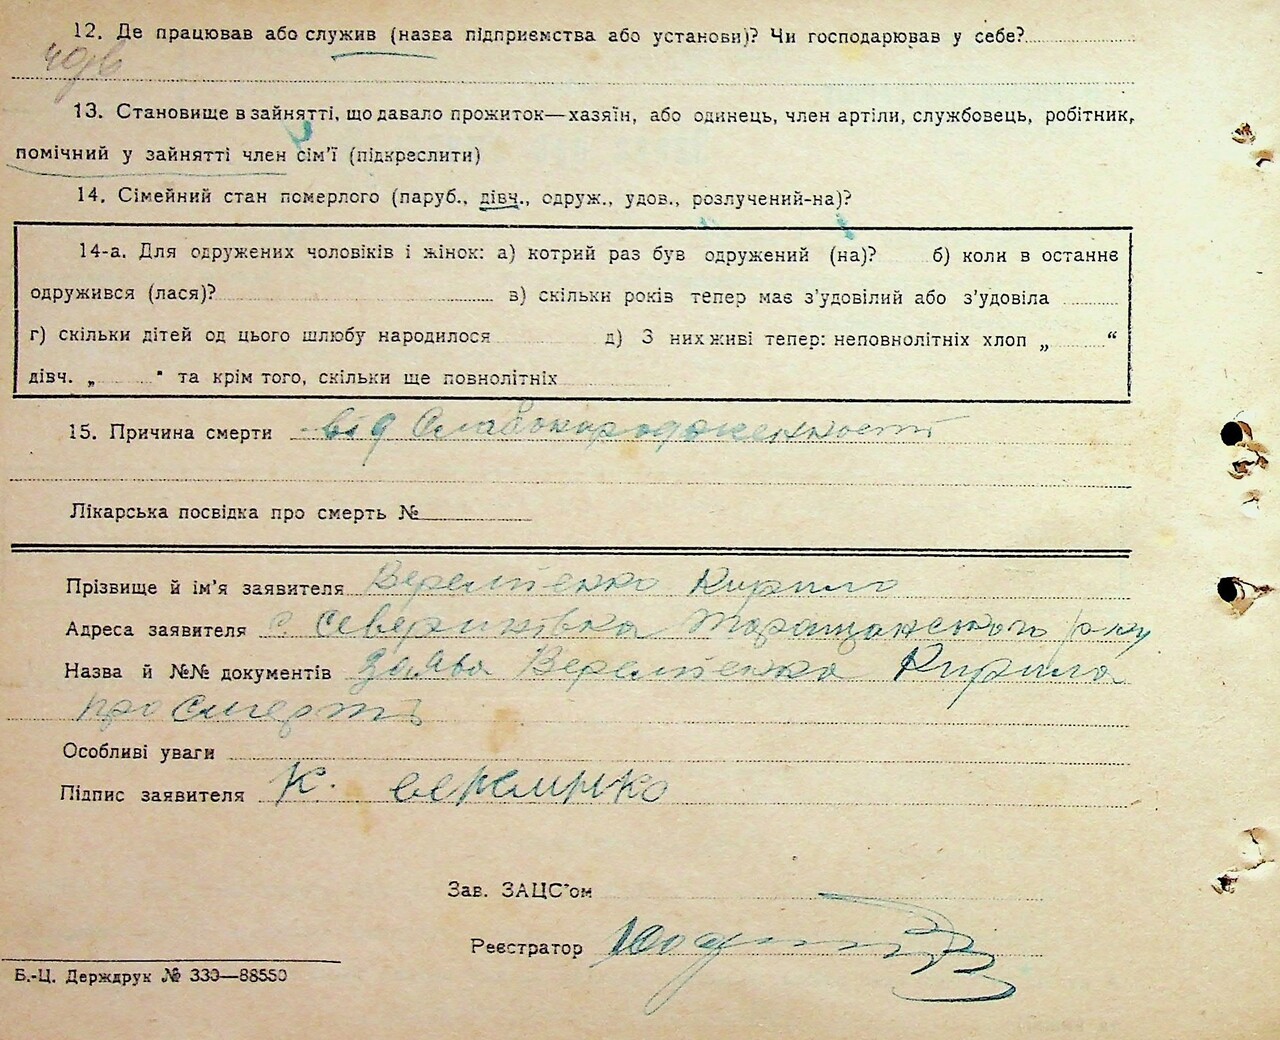 12. Де працював або служив (назва підприємства або установи)? Чи господарював у себе?
13. Становище в зайнятті, що давало прожиток—хазяїн, або одинець, член артіли, службовець, робітник,
помічний у зайнятті член сім'ї (підкреслити)
14. Сімейний стан померлого (паруб., дівч., одруж., удов., розлучений-на)?
14-а. Для одружених чоловіків і жінок: а) котрий раз був одружений (на)? б) коли в останнє
одружився (лася)? в) скільки років тепер має з'удовілий або з'удовіла
г) скільки дітей од цього шлюбу народилося д) З них живі тепер: неповнолітніх хлоп „ “
дівч. „ " та крім того, скільки ще повнолітніх
15. Причина смерти від Слабонародженности
Лікарська посвідка про смерть №
Прізвище й ім'я заявителя Веремієнко Кирило
Адреса заявителя с. Северинівка Таращанського р-ну
Назва й №№ документів Заява Веремієнка Кирила
про смерть
Особливі уваги
Підпис заявителя К.
Зав. ЗАЦС'ом
Реєстратор
Б.-Ц. Держдрук № 330—88550